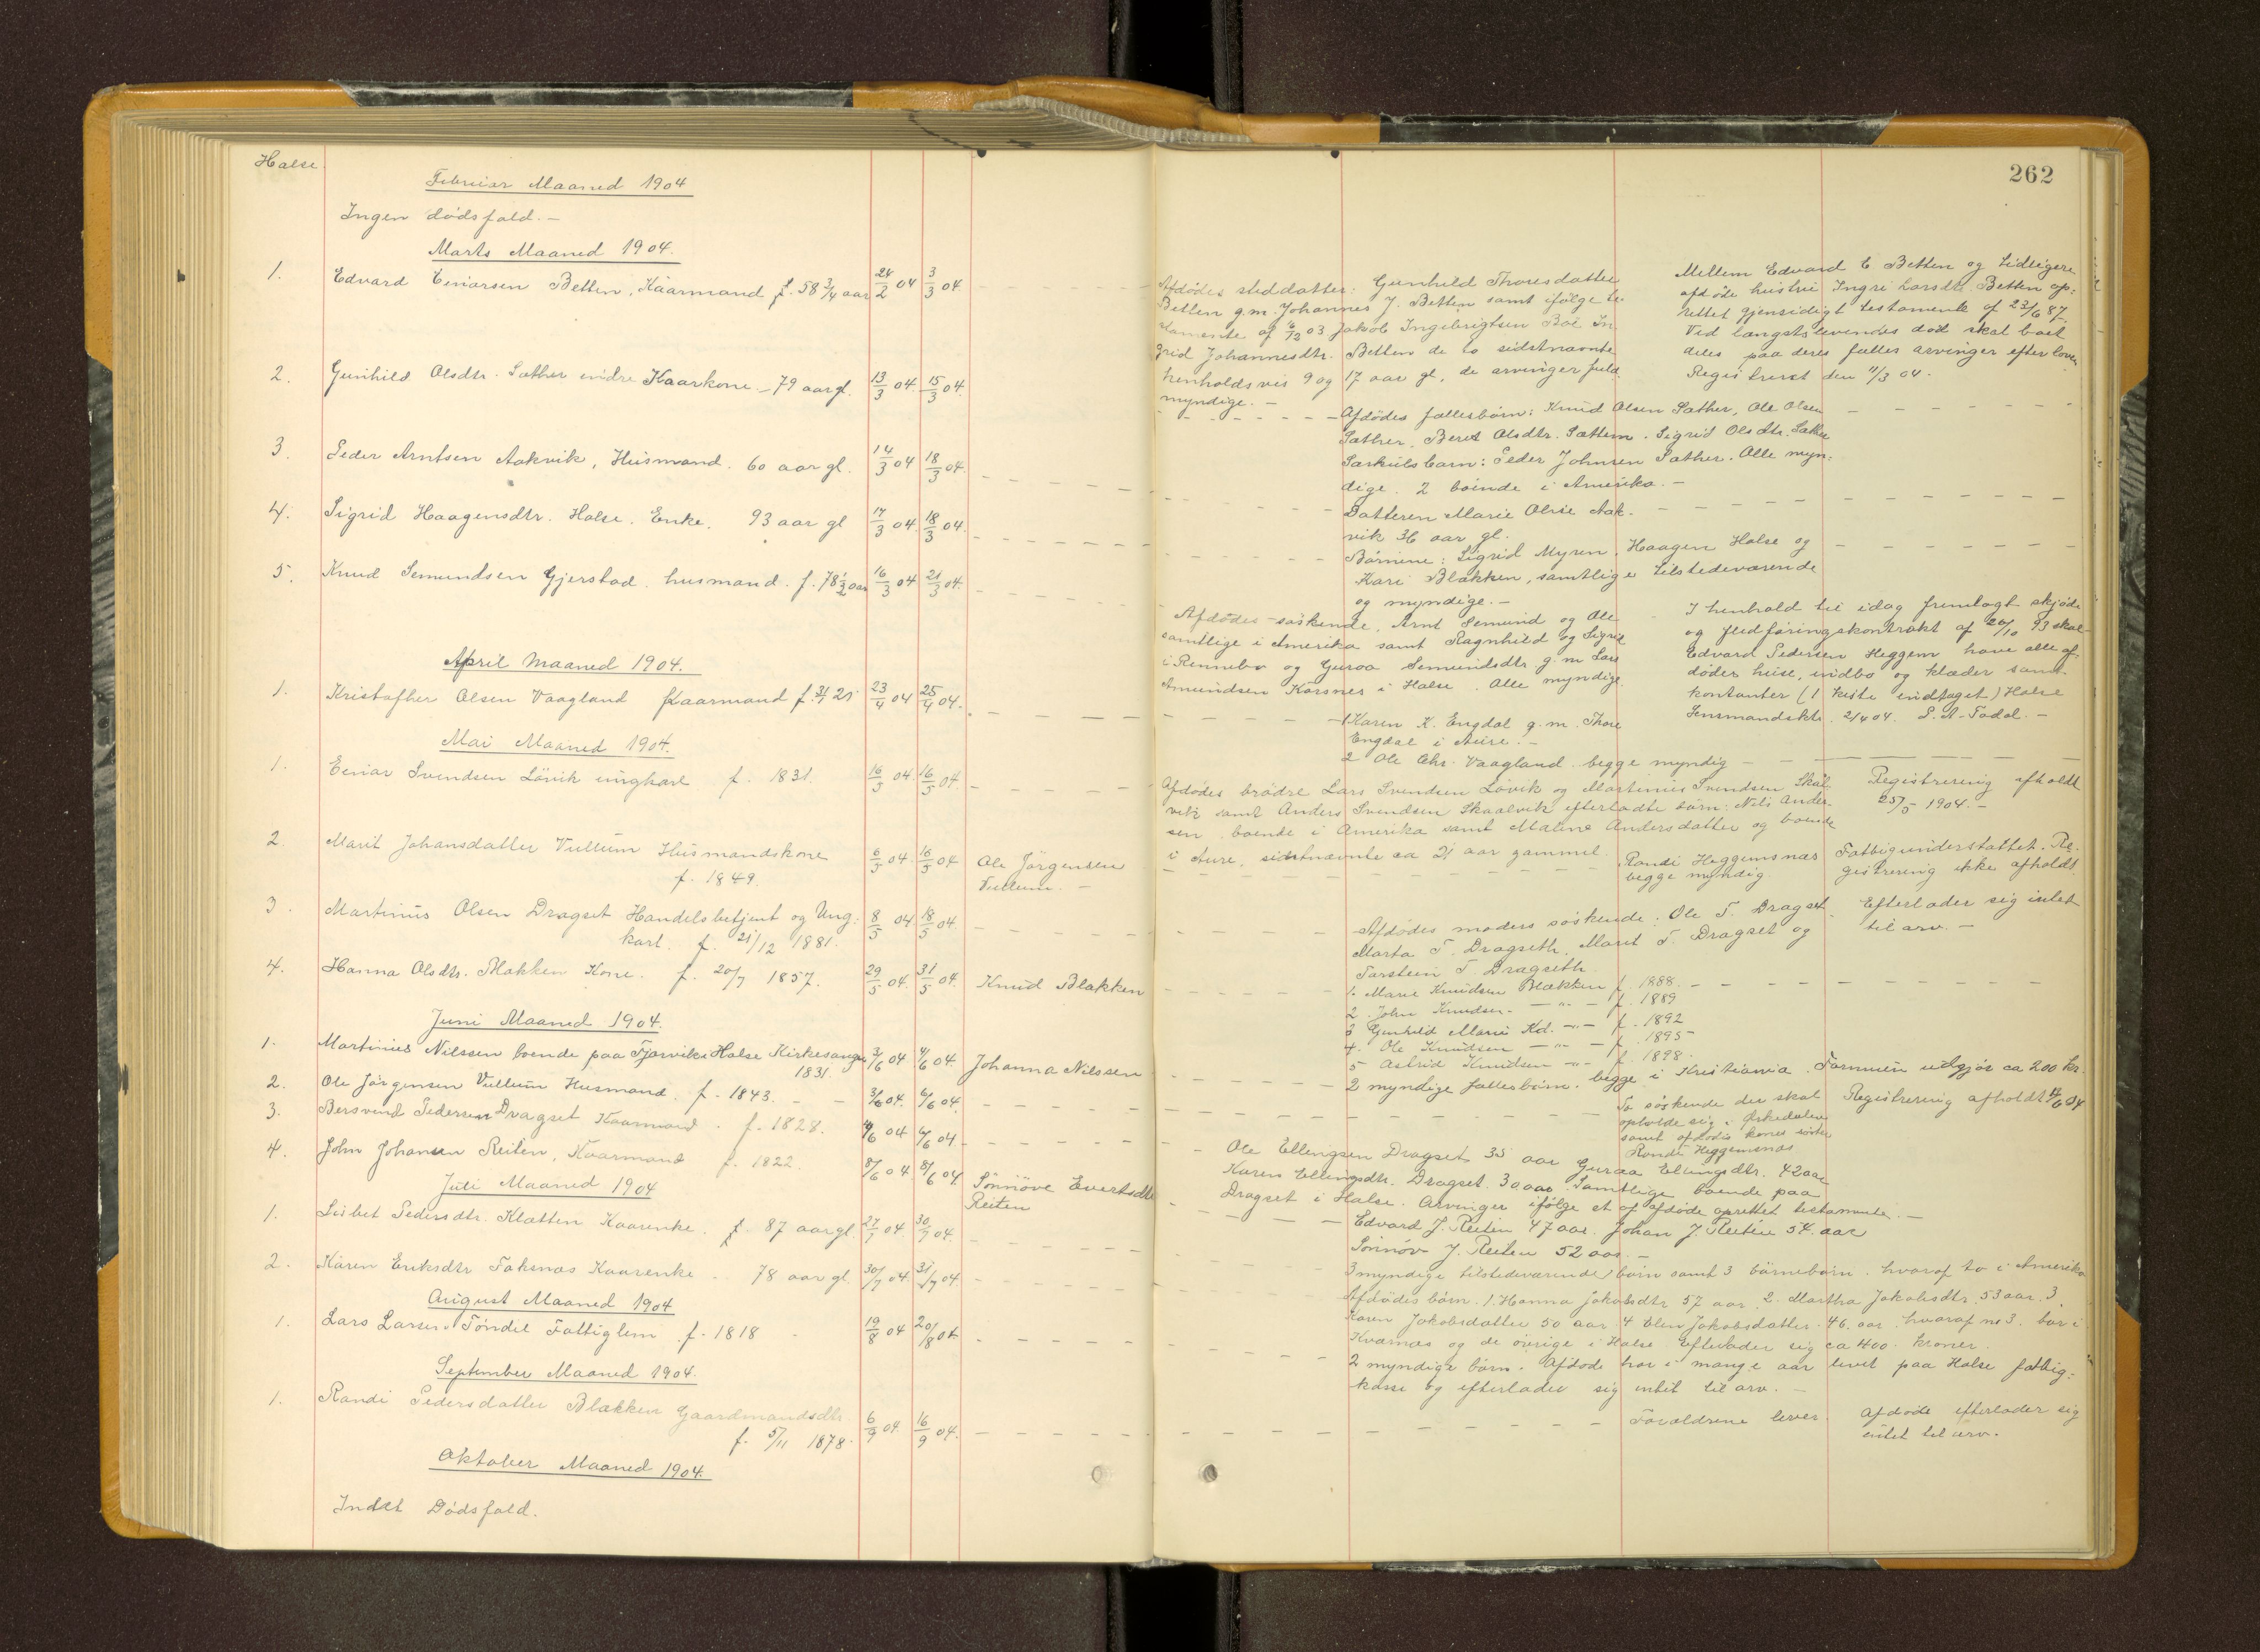 Halse.
Februar Maaned 1904
Ingen dødsfald. -
Marts Maaned 1904.
1. Edvard Einarsen Betten, Kaarmand f. 58 3/4 aar 24/2 04 3/3 04.
2. Gunhild Olsdtr. Sæther indre Kaarkone - 79 aar gl. 13/3 04. 15/3 04.
3. Peder Arntsen Aakvik, Husmand. 60 aar gl. 14/3 04 18/3 04.
4. Sigrid Haagensdtr. Halse. Enke. 93 aar gl 17/3 04. 18/3 04.
5. Knud Semundsen Gjerstad. husmand. f. 78 1/2 aar 16/3 04 21/3 04.
April Maaned 1904.
1. Kristofher Olsen Vaagland Kaarmand f. 21 23/4 04 25/4 04.
Mai Maaned 1904.
1. Einar Svendsen Lövik ungkarl f. 1831. 16/5 04. 16/5 04.
2. Marit Johansdatter Vullum Husmandskone 6/5 04. 16/5 04 Ole Jörgensen
f. 1849. Vullum. -
3. Martinus Olsen Dragset Handelsbetjent og Ung: 8/5 04 18/5 04.
karl. f. 21/12 1881.
4. Hanna Olsdtr. Blakken Kone. f. 20/7 1857. 29/5 04. 31/5 04. Knud Blakken
Juni Maaned 1904.
1. Martinus Nilssen boende paa Fjorvik i Halse Kirkesanger 3/6 04 4/6 04. Johanna Nilssen
1831
2. Ole Jörgensen Vullum Husmand. f. 1843. - - 3/6 04. 6/6 04.
3. Bersvend Pedersen Dragset Kaarmand. f. 1828. 4/6 04 6/6 04
4. John Johansen Reiten, Kaarmand f. 1822. 8/6 04. 8/6 04 Sönnöve Evertsdtr
Reiten
Juli Maaned 1904
1. Lisbet Pedersdtr. Klætten Kaarenke. f. 87 aar gl. 27/7 04. 30/7 04.
2. Karen Eriksdtr Foksnæs Kaarenke. 78 aar gl. 30/7 04. 31/7 04
August Maaned 1904
1. Lars Larsen Tøndel Fattiglem. f. 1818 19/8 04 20/8 04
September Maaned 1904.
1. Randi Pedersdatter Blakken Gaardmandsdtr. 6/9 04. 16/9 04.
f. 5/11 1878.
Oktober Maaned 1904.
Indet Dødsfald.
262
Afdødes steddatter: Gunhild Thoresdatter
Betten g.m. Johannes J. Betten samt ifølge te-
stamente af 03 Jakob Ingebrigtsen Boe In-
grid Johannesdtr. Betten de to sidstnævnte
henholdsvis 9 og 17 aar gl, de arvinger fuld
myndige. -
Mellem Edvard E Betten og tidligere
afdøde hustru Ingri Larsdtr. Betten op:
rettet gjensidigt testamente af 23/6 87.
Ved længstlevendes død skal boet
deles paa deres fælles arvinger efter loven
Registreret den 11/3 04.
Afdødes fællesbørn: Knud Olsen Sæther, Ole Olsen
Sæther. Beret Olsdtr. Sættem. Sigrid Olsdtr. Sæther
Særkulsbarn: Peder Johnsen Sæther. Alle myn:
dige. 2 boende i Amerika. -
Datteren Marie Olise Aak-
vik 36 aar gl.
Börnene: Sigrid Myren. Haagen Halse og
Kari Blakken, samtlige tilstedeværende
og myndige. -
Afdødes søskende, Arnt Semund og Ole
samtlige i Amerika samt Ragnhild og Sigrid
i Rennebo og Guroa Semundsdtr g.m Lars
Amundsen Korsnes i Halse. Alle myndige.
I henhold til idag fremlagt skjøde
og flidføringskontrakt af 20/10 93 skal
Edvard Pedersen Heggem have alle af:
dødes huse, indbo og klæder samt
kontanter (1 kiste indtaget) Halse
Lensmandsktr. 21/4 04. P. A. Todal. -
1 Karen K. Engdal g.m. Thore
Engdal i Aure. -
2 Ole Chr. Vaagland. begge myndig
Afdødes brødre Lars Svendsen Lövik og Martinus Svendsen Skål
vik samt Anders Svendsen Skaalvik efterladte børn: Nils Ander
sen, boende i Amerika samt Maline Andersdatter og boende
i Aure, sidstnævnte ca 21 aar gammel.
Registrering afholdt
25/5 1904. -
Randi Heggemsnæs
begge myndig.
Fattigunderstøttet. Re:
gistrering ikke afholdt.
Afdødes moders søskende: Ole T. Dragset
Marta T. Dragseth. Marit T. Dragset og
Torstein T. Dragseth.
Efterlader sig intet
til arv. -
1. Marie Knudsen Blækken f. 1888.
2. John Knudsen - " - f. 1889
3 Gunhild Marie Kd. - " - f. 1892
4. Ole Knudsen - " - f. 1895 -
5 Astrid Knudsen - " - f. 1898.
2 myndige fællesbörn. begge i Kristiania. Formuen udgjør ca 200 kr.
To søskende der skal
opholde sig i Orkedalen
samt afdødes kones søster
Randi Heggemsnæs
Registrering afholdt 04
Ole Ellingsen Dragset 35 aar Guraa Ellingsdtr. 42 aar
Karen Ellingsdtr. Dragset. 30 aar. Samtlige boende paa
Dragset i Halse. Arvinger ifölge et af afdøde oprettet testamente. -
Edvard J. Reiten 47 aar. Johan J. Reiten 54. aar
Sönnöv J. Reiten 52 aar. -
3 myndige tilstedeværende börn samt 3 börnebörn. hvoraf to i Amerika
Afdødes börn. 1. Hanna Jakobsdtr 57 aar 2. Martha Jakobsdtr. 53 aar. 3.
Karen Jakobsdatter 50 aar. 4 Elen Jakobsdatter 46. aar. hvoraf no 3. bor i
Kvernæs og de øvrige i Halse. Efterlader sig ca 400. kroner.
2 myndige börn. Afdøde har i mange aar levet paa Halse fattig:
kasse og efterlader sig intet til arv. -
Forældrene lever.
Afdøde efterlader sig
intet til arv.